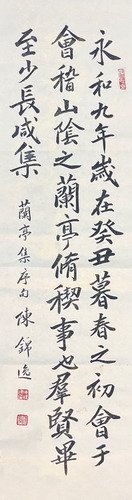 永和九年歲在癸丑暮春之初會于
會稽山陰之蘭亭脩稧事也羣賢畢
至少長咸集
蘭亭集序句 陳錦逸